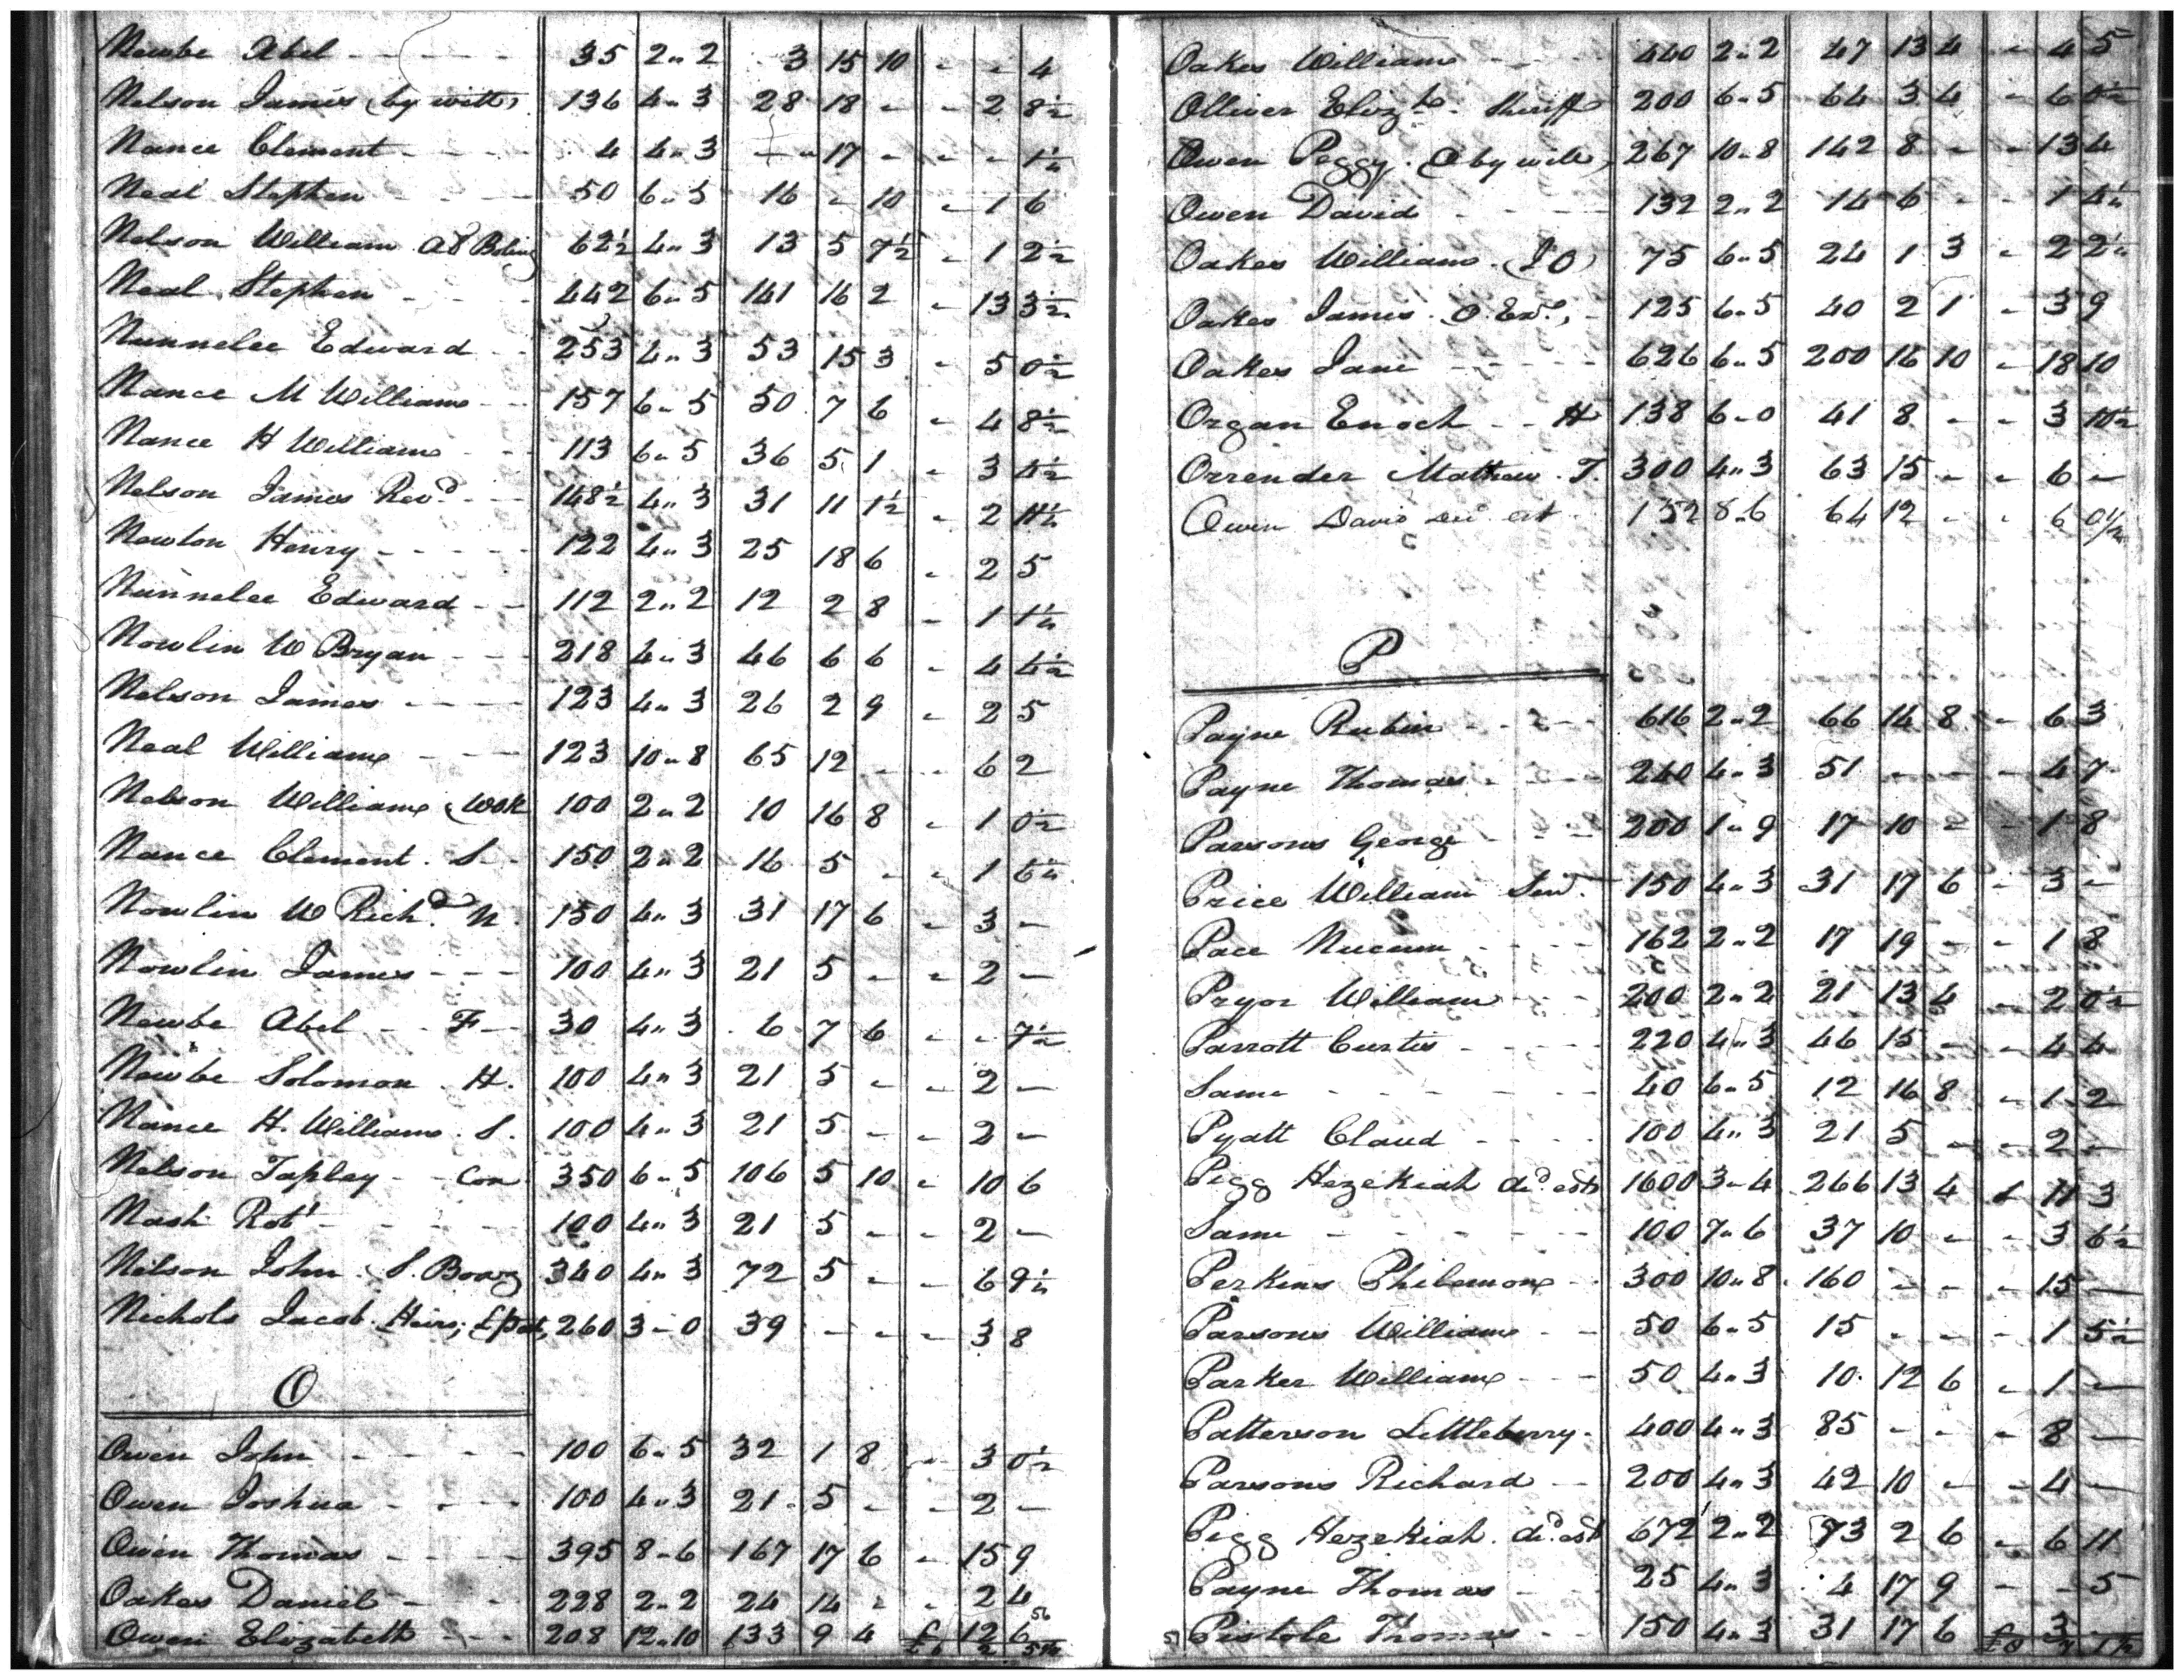 Newbe Abel - - - - 35 2"2 3 15 10 - - 4
Nelson James (by will) 136 4"3 28 18 - - 2 8½
Nance Clement - - - 4 4"3 - " 17 - - - 1¼
Neal Stephen - - - 50 6"5 16 - 10 - 1 6
Nelson William 62½ 4"3 13 5 7½ - 1 2½
Neal Stephen - - - 442 6"5 141 16 2 - 13 3½
Nunnelee Edward - - 253 4"3 53 15 3 - 5 0½
Nance M William - - 157 6"5 50 7 6 - 4 8½
Nance H William - - 113 6"5 36 5 1 - 3 4½
Nelson James Revd - - 148½ 4"3 31 11 1½ - 2 11½
Newton Henry - - - - 122 4"3 25 18 6 - 2 5
Nunnelee Edward - - 112 2"2 12 2 8 - 1 1¼
Nowlin W Bryan - - - 218 4"3 46 6 6 - 4 4½
Nelson James - - - - 123 4"3 26 2 9 - 2 5
Neal William - - - 123 10"8 65 12 - - 6 2
Nelson William 100 2"2 10 16 8 - 1 0½
Nance Clement . S - 150 2"2 16 5 - - 1 6¼
Nowlin W Richd N. 150 4"3 31 17 6 - 3 -
Nowlin James - - - 100 4"3 21 5 - - 2 -
Newbe Abel - - F - 30 4"3 6 7 6 - - 7½
Newbe Solomon . H. 100 4"3 21 5 - - 2 -
Nance H. William . S. 100 4"3 21 5 - - 2 -
Nelson Tapley - - Con 350 6"5 106 5 10 - 10 6
Nash Robt - - - - 100 4"3 21 5 - - 2 -
Nelson John . S. Boaz 340 4"3 72 5 - - 6 9½
Nichols Jacob Heirs; 260 3-0 39 - - - 3 8
O
Owen John - - - - 100 6"5 32 1 8 - 3 0½
Owen Joshua - - - - 100 4"3 21 5 - - 2 -
Owen Thomas - - - - 395 8-6 167 17 6 - 15 9
Oakes Daniel - - - 228 2"2 24 14 - - 2 4
Owen Elizabeth - - - 208 12"10 133 9 4 12 6
Oakes William - - - 440 2"2 47 13 4 - 4 5
Olliver Elizth - Sheriff 200 6"5 64 3 4 - 6 0½
Owen Peggy . (by will) 267 10"8 142 8 - - 13 4
Owen David - - - 132 2"2 14 6 - - 1 4¼
Oakes William . (J O) 75 6"5 24 1 3 - 2 2¼
Oakes James . 125 6"5 40 2 1 - 3 9
Oakes Jane - - - - 626 6"5 200 16 10 - 18 10
Organ Enoch - - H 138 6"0 41 8 - - 3 10½
Orrender Mathew . T. 300 4"3 63 15 - - 6 -
Owen David est 152 8"6 64 12 - - 6 0½
P
Payne Rubin - - - - 616 2"2 66 14 8 - 6 3
Payne Thomas - - - 240 4"3 51 - - - 4 7
Parsons George - - - 200 1"9 17 10 - - 1 8
Price William Senr. 150 4"3 31 17 6 - 3 -
Pace Nucum - - - - 162 2"2 17 19 - - 1 8
Pryor William - - - 200 2"2 21 13 4 - 2 0½
Parrott Curtis - - - - 220 4"3 46 15 - - 4 4
Same - - - - - 40 6"5 12 16 8 - 1 2
Pyatt Claud - - - - 100 4"3 21 5 - - 2 -
Pigg Hezekiah decd est 1600 3"4 266 13 4 11 3
Same - - - - - 100 7"6 37 10 - - 3 6½
Perkins Philemon - - 300 10"8 160 - - - 15 -
Parsons William - - 50 6"5 15 - - - 1 5½
Parker William - - - 50 4"3 10 12 6 - 1 -
Patterson Littleberry - 400 4"3 85 - - - 8 -
Parsons Richard - - 200 4"3 42 10 - - 4 -
Pigg Hezekiah . decd est 672 2"2 73 2 6 - 6 11
Payne Thomas - - 25 4"3 4 17 9 - - 5
Pistole Thomas - - 150 4"3 31 17 6 3 -